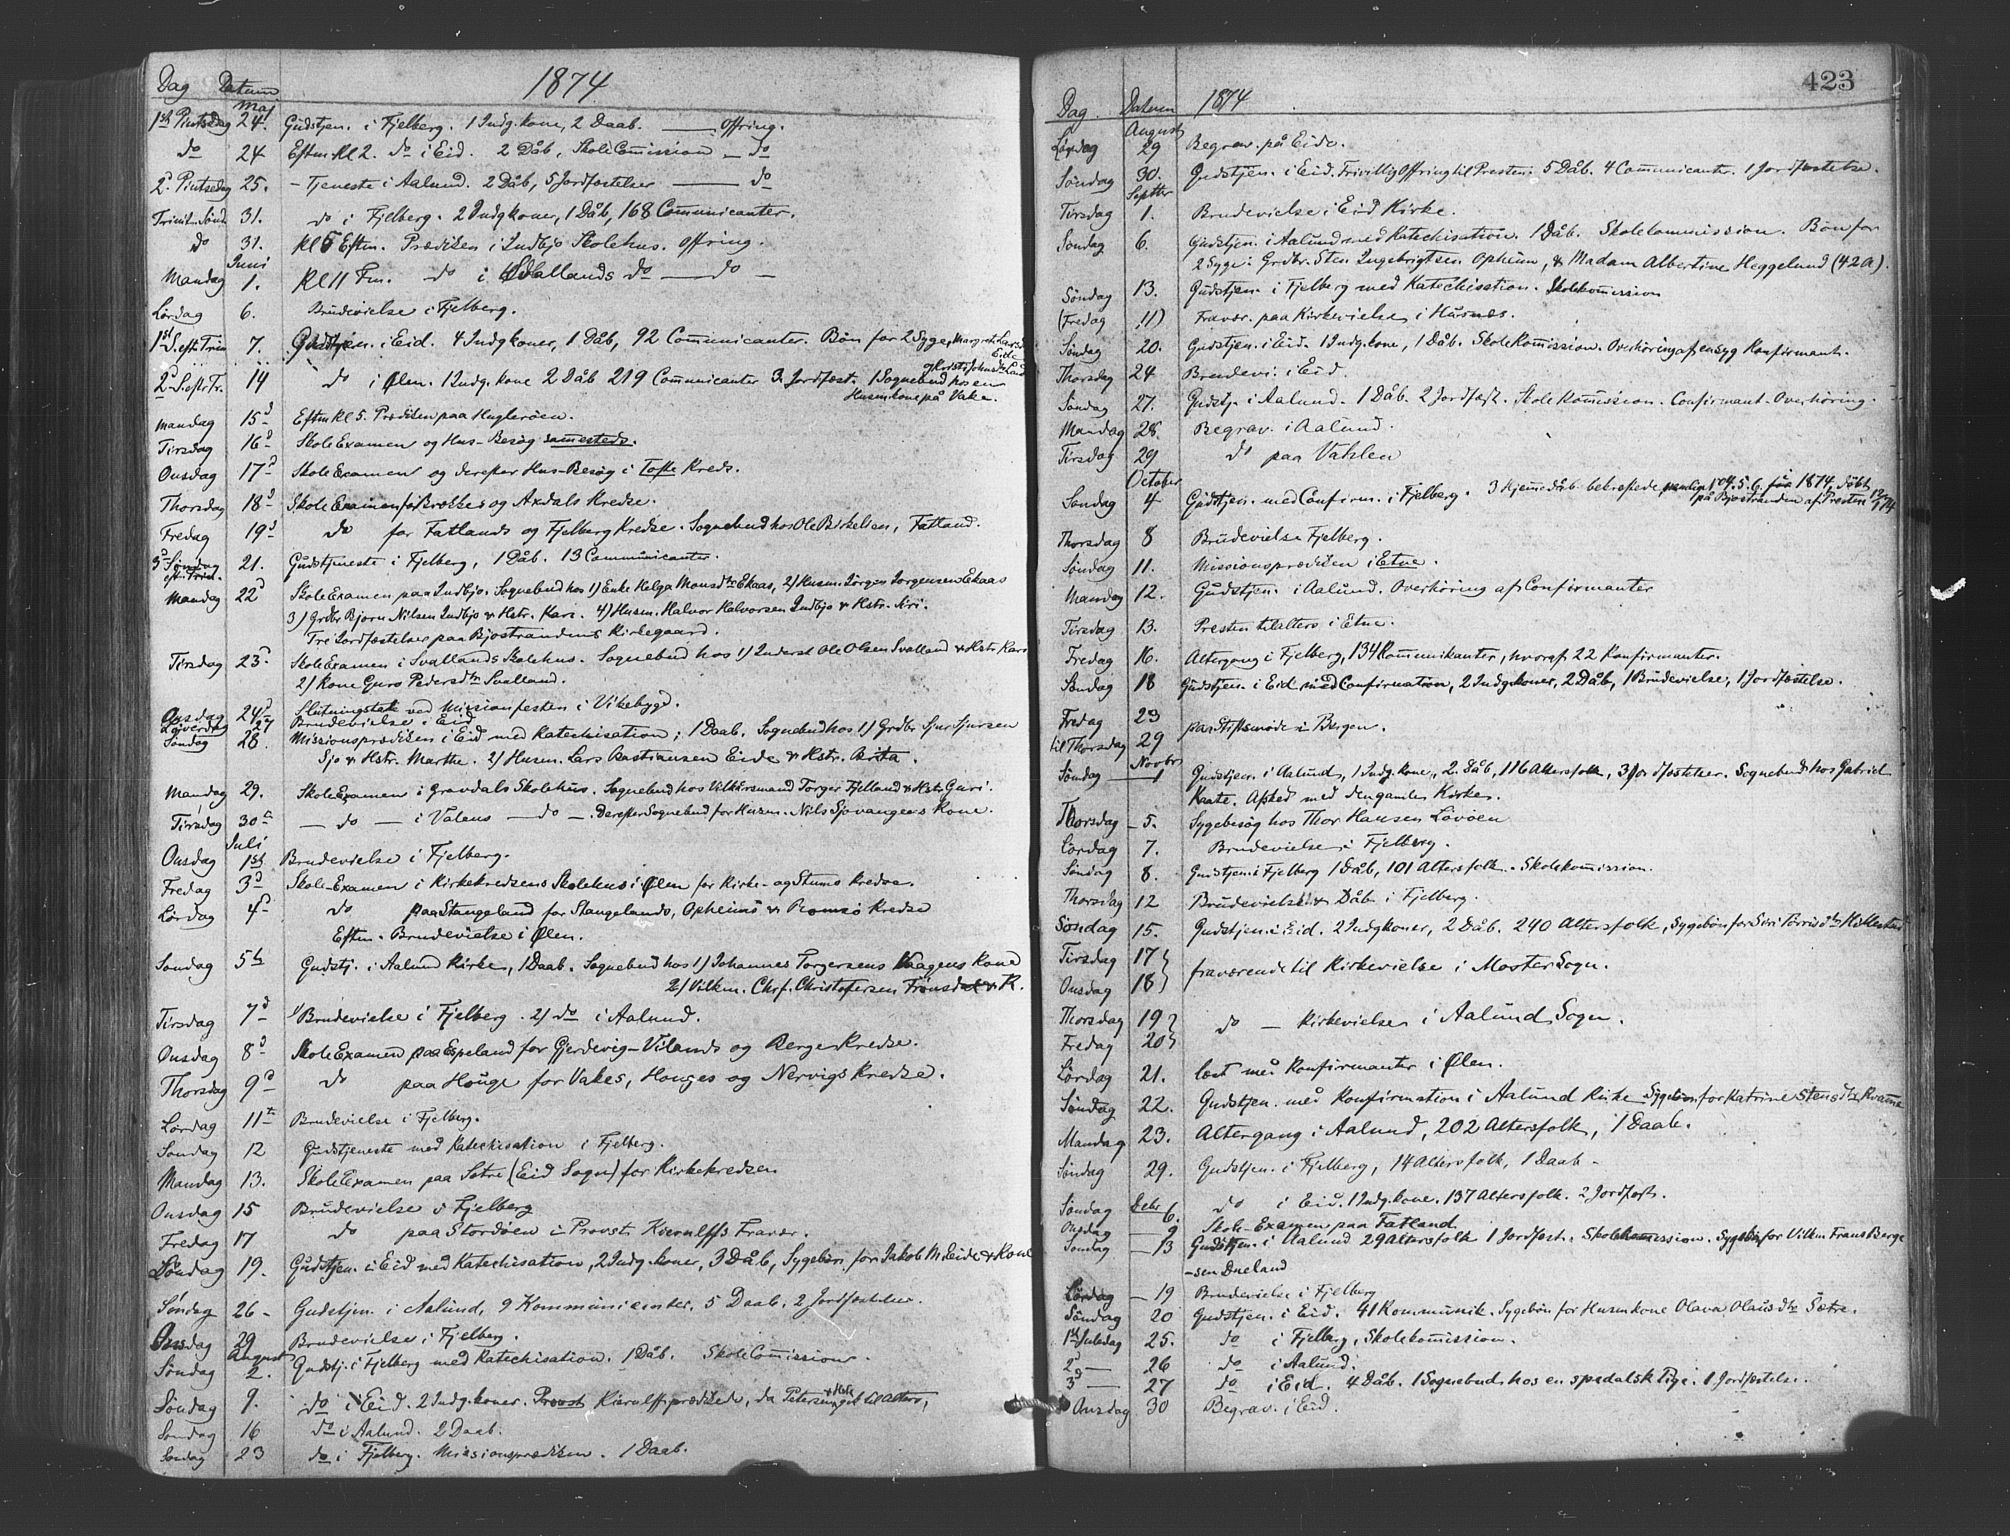 Dag Datum 1874
Maj
1ste Pintsedag 24. Gudstjen. i Fjelberg. 1 Indg. kone, 2 Daab. — Offring.
do 24 Eftm Kl 2. do i Eid. 2 Dåb, Skole Comission — do
2. Pintsedag 25. – Tjeneste i Aalund. 2 Dåb, 5 Jordfæstelser — do
Trinit. Sønd 31. do i Fjelberg. 2 Indgkone, 1 Dåb, 168 Communicanter.
do 31. Kl 5 Eftm. Prædiken i Indbjo Skolehus. Offring.
Juni
Mandag 1. Kl 11 Fm. do i Svallands do — do —
Lørdag 6. Brudevielse i Fjelberg.
1st S. eft. Trin 7. Gudstjen. i Eid. 4 Indgkoner, 1 Dåb, 92 Communicanter. Bøn for 2 Syge, Margrete Larsd.
Eide
2d S. eft. Tr. 14 do i Ølen. 1 Indg. kone 2 Dåb 219 Communicanter 3 Jordfæst. 1 Sognebud hos en
Husmkone på Vake.
Mandag 15d Eftm Kl 5. Prædiken paa Huglerøen.
Tirsdag 16d Skole Examen og Hus-Besøg samesteds.
Onsdag 17d Skole Examen og derefter Hus-Besøg i Tofte Kreds.
Thorsdag 18d Skole Examen for Brekkes og Axdals Kredse.
Fredag 19d do for Fatlands og Fjelberg Kredse. Sognebud hos Ole Birkelsen, Fatland.
3d Søndag eft. Trin. 21. Gudstjeneste i Fjelberg, 1 Dåb. 13 Communicanter.
Mandag 22d Skole Examen paa Indbjo. Sognebud hos 1) Enke Helga Monsdtr Ekaas, 2) Husm. Jørgen Jørgensen Ekaas
3) Grdbr Bjørn Nilsen Indbjo & Hstr. Kari. 4) Husm. Halvor Halvorsen Indbjo & Hstr. Siri.
Tre Jordfæstelser paa Bjostrandens Kirkegaard.
Tirsdag 23d. Skole Examen i Svallands Skolehus. Sognebud hos 1) Inderst Ole Olsen Svalland & Hstr Kari
2) Kone Guro Pedersdtr Svalland.
Onsdag 24d Slutningstale ved Missionsfesten i Vikebygd.
Løverdag 27 Brudevielse i Eid
Søndag 28. Missionsprædiken i Eid med Katechisation; 1 Daab. Sognebud hos 1) Grdbr Sjur Sjursen
Sjo & Hstr. Marthe. 2) Husm. Lars Bastiansen Eide & Hstr. Brita.
Mandag 29. Skole Examen i Gravdals Skolehus. Sognebud hos Vilkårsmand Torger Fjelland & Hstr. Guri.
Tirsdag 30te — do — i Valens — do —. Derefter Sognebud for Husm. Nils Sjovangens Kone.
Juli
Onsdag 1st Brudevielse i Fjelberg.
Fredag 3d Skole-Examen i Kirkekredsens Skolehus i Ølen for Kirke- og Stums Kredse.
Lørdag 4d do paa Stangeland for Stangelands, Opheims & Romsø Kredse
Eftm. Brudevielse i Ølen.
Søndag 5te Gudstj. i Aalund Kirke, 1 Daab. Sognebud hos 1) Johannes Torgersens Vaagens Kone
2) Vilkm. Chrf. Christofersen Frønsdal & K.
Tirsdag 7d 1) Brudevielse i Fjelberg. 2) do i Aalund.
Onsdag 8d Skole Examen paa Espeland for Gjerdevig-Vilands og Berge Kredse.
Thorsdag 9d do paa Houge for Vakes, Houges og Nervigs Kredse.
Lørdag 11te Brudevielse i Fjelberg.
Søndag 12 Gudstjeneste med Katechisation i Fjelberg.
Mandag 13. Skole Examen paa Sætre (Eid Sogn) for Kirkekredsen
Onsdag 15 Brudevielse i Fjelberg
Fredag 17 do paa Stordøen i Provst Kierulffs Fravær.
Søndag 19. Gudstjen. i Eid med Katechisation, 2 Indg. koner, 3 Dåb, Sygebøn for Jakob M. Eide & Kone
Søndag 26 – Gudstjen. i Aalund, 9 Kommunicanter, 5 Daab, 2 Jordfæstelser.
Onsdag 29 Brudevielse i Fjelberg.
August
Søndag 2. Gudstj. i Fjelberg med Katechisation. 1 Dåb. Skole Comission.
Søndag 9. do i Eid. 2 Indg. koner. Provst Kierulff prædiked, da Petersen & Hstr gik til Alters,
Søndag 16 do i Aalund. 2 Daab.
Søndag 23 do i Fjelberg. Missionsprædiken. 1 Daab.
423
Dag. Datum 1874
August
Lørdag 29 Begrav. på Eide.
Søndag 30. Gudstjen. i Eid. Frivillig Offring til Presten. 5 Dåb. 4 Communicanter. 1 Jordfæstelse.
Septbr
Tirsdag 1. Brudevielse i Eid Kirke.
Søndag 6. Gudstjen. i Aalund med Katechisation. 1 Dåb. Skolekommission. Bøn for
2 Syge: Grdbr. Sten Ingebrigtsen Opheim, & Madam Albertine Heggelund (42 A).
Søndag 13. Gudstjen. i Fjelberg med Katechisation. Skolekomission
(Fredag 11) Fravær. paa Kirkevielse i Husnæs.
Søndag 20. Gudstjen. i Eid. 1 Indg. kone, 1 Dåb. Skole Komission. Overhøring af en syg Konfirmant.
Thorsdag 24. Brudevi. i Eid.
Søndag 27. Gudstj. i Aalund. 1 Dåb. 2 Jordfæst. Skole Komission. Confirmant Overhøring.
Mandag 28. Begrav. i Aalund.
Tirsdag 29 do paa Vatslen
October
Søndag 4 Gudstjen. med Confirm. i Fjelberg. 3 Hjemedåb bekræftede
på Bjostranden af Presten
Thorsdag 8 Brudevielse Fjelberg.
Søndag 11. Missionsprædiken i Etne.
Mandag 12. Gudstjen. i Aalund. Overhøring af Confirmanter
Tirsdag 13. Presten til alters i Etne.
Fredag 16. Altergang i Fjelberg, 134 Kommunikanter, hvoraf 22 Konfirmanter.
Søndag 18 Gudstjen. i Eid med Confirmation, 2 Indg. koner, 2 Dåb, 1 Brudevielse, 1 Jordfæstelse.
Fredag 23
til Thorsdag 29 paa Stiftsmøde i Bergen.
Novbr
Søndag 1 Gudstjen. i Aalund, 1 Indg. kone, 2 Dåb, 116 Altersfolk, 3 Jordfæstelser. Sognebud hos Gabriel
Kaate. Afsked med den gamle Kirke.
Thorsdag – 5. Sygebesøg hos Thor Hansen Løvøen
Lørdag 7. Brudevielse i Fjelberg.
Søndag 8. Gudstjen. i Fjelberg 1 Dåb, 101 Altersfolk. Skolekomission.
Thorsdag 12 Brudevielse & Dåb i Fjelberg.
Søndag 15. Gudstjen. i Eid. 2 Indgkoner, 2 Dåb. 240 Altersfolk, Sygebøn for Siri
Tirsdag 17
Onsdag 18 fraværende til Kirkevielse i Moster Sogn.
Thorsdag 19
Fredag 20 do — Kirkevielse i Aalund Sogn.
Lørdag 21. læst med Konfirmanter i Ølen.
Søndag 22. Gudstjen. med Konfirmation i Aalund Kirke Sygebøn for Katrine Stensdtr Kvame
Mandag 23. Altergang i Aalund, 202 Altersfolk, 1 Daab.
Søndag 29. Gudstjen. i Fjelberg, 14 Altersfolk, 1 Daab –
Decbr
Søndag 6. do i Eid. 1 Indg. kone. 137 Altersfolk. 2 Jordfæst.
Onsdag – 9 Skole-Examen paa Fatland
Søndag – 13 Gudstjen. i Aalund 29 Altersfolk 1 Jordfæst. Skolekomission. Sygebøn for Vilkm Frans Berge
-sen Dueland
Lørdag – 19 Brudevielse i Fjelberg
Søndag 20 Gudstjen. i Eid. 41 Kommunik. Sygebøn for Husmkone Olava Olausdtr Sætre.
1st Juledag 25. do i Fjelberg, Skolekomission.
2d — 26 do i Aalund.
3d — 27 do i Eid. 4 Dåb. 1 Sognebud hos en spedalsk Pige. 1 Jordfæstelse.
Onsdag 30 Begrav. i Eid.